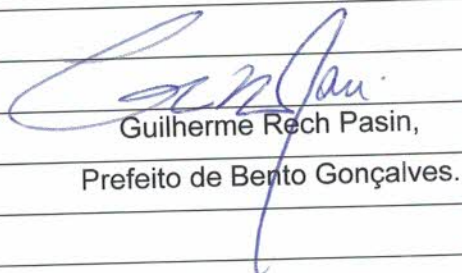 Guilherme Rech Pasin,
Prefeito de Bento Gonçalves.